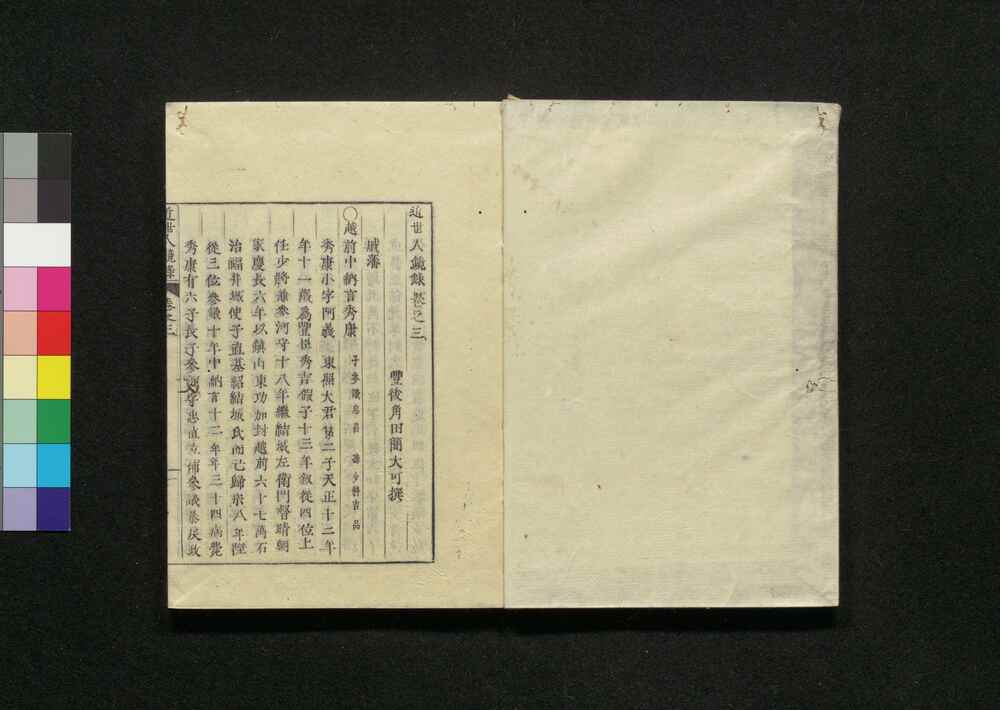 近世人鏡錄卷之三
豐後角田簡大可撰
城藩
○越前中納言秀康 子參議忠昌 孫少將吉品
秀康小字阿義東照大君第二子天正十二年
年十一歲爲豐臣秀吉假子十三年叙從四位上
任少將兼參河守十八年繼結城左衛門督晴朝
家慶長六年以鎮山東功加封越前六十七萬石
治福井城使子直基紹結城氏而己歸宗八年陞
從三位參議十年中納言十二年年三十四病薨
秀康有六子長子參河守忠直立補參議暴戾政
近世人鏡錄 卷之三 一